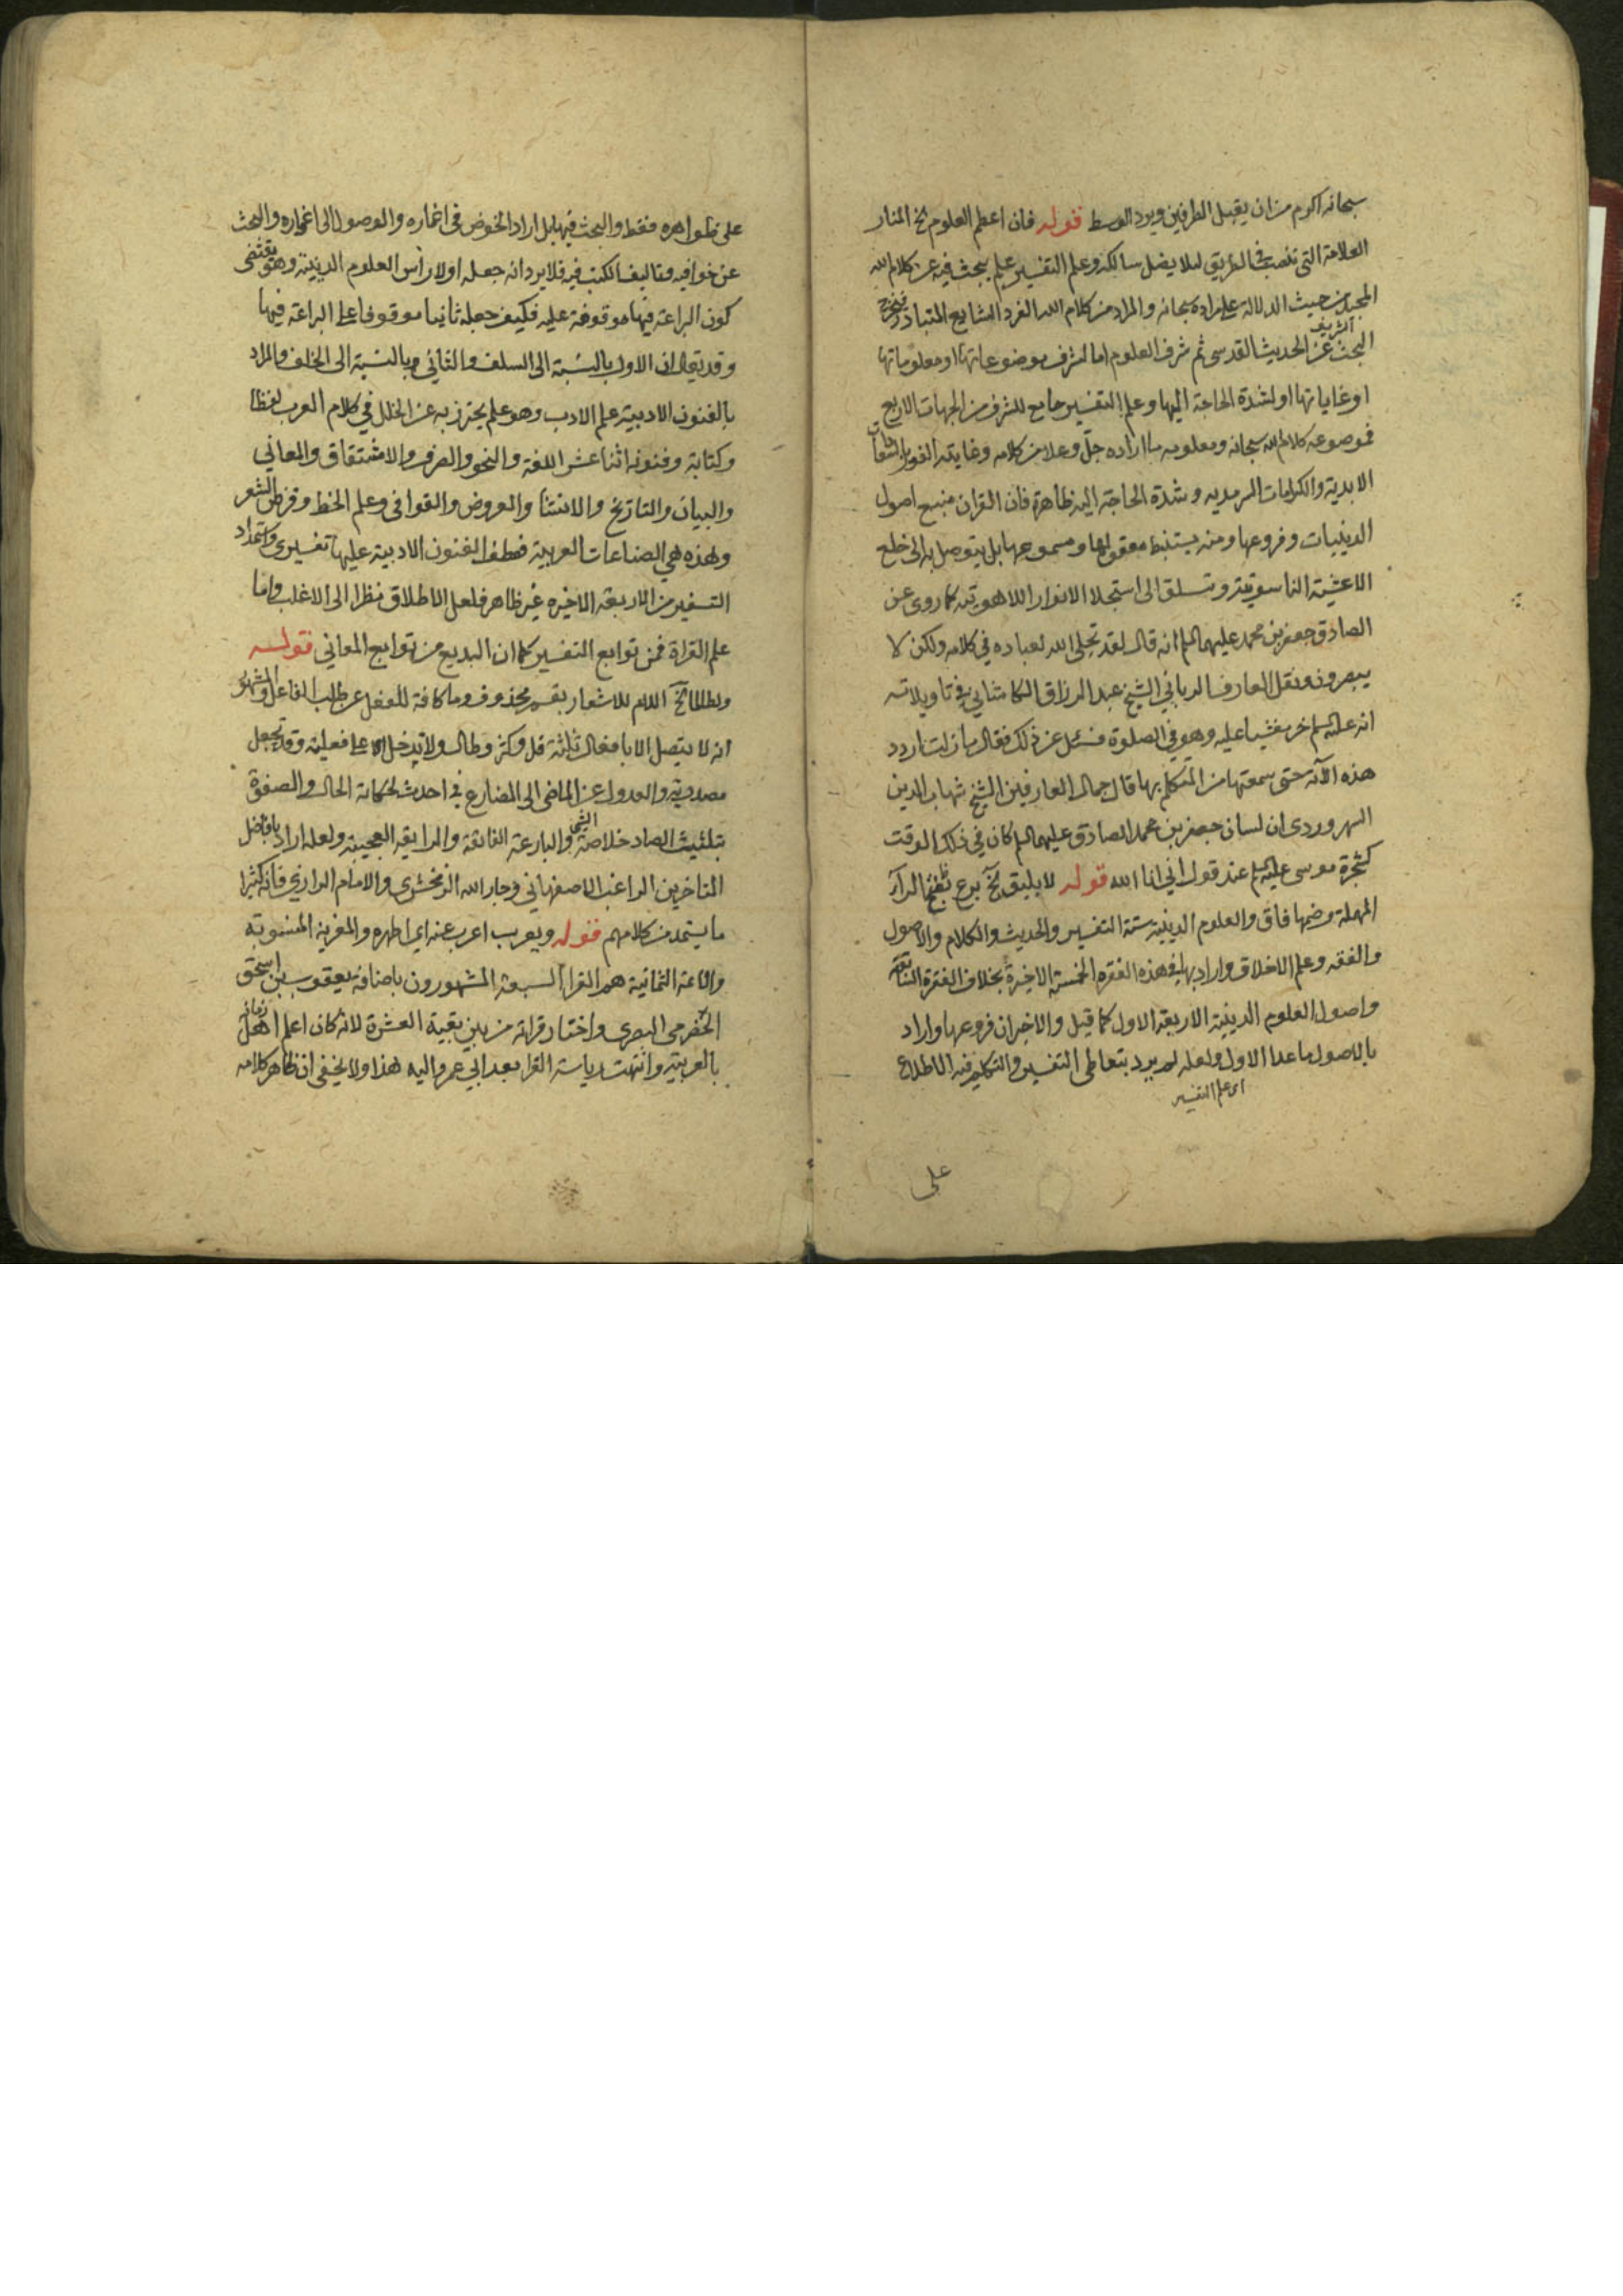 سبحانه اكرم من ان يقبل الطرفين ويرد الوسط قوله فان اعظم العلوم الخ المنار
العلامة التي تنصب في الطريق لئلا يضل سالكه وعلم التفسير علم يبحث فيه عن كلام الله
المجيد من حيث الدلالة على مراده سبحانه والمراد من كلام الله الفرد الشايع المتبادر فيخرج
البحث عن الحديث القدسي ثم شرف العلوم اما لشرف موضوعاتها او معلوماتها
الشريف
او غاياتها او لشدة الحاجة اليها وعلم التفسير جامع للشرف من الجهات الاربع
فموضوعه كلام الله سبحانه ومعلومه ما اراده جل وعلا من كلامه وغايته الفوز بالسعادات
الابدية والكرامات السرمديه وشدة الحاجة اليه ظاهرة فان القران منبع اصول
الدينيات وفروعها ومنه يستنبط معقولها ومسموعها بل يتوصل به الى خلع
الاغشية الناسوتية وتسلق الى استجلا الانوار اللاهوتية كما روى عن
الصادق جعفر بن محمد عليهما السلم انه قال لقد تجلى الله لعباده في كلامه ولكن لا
يبصرون ونقل العارف الرباني الشيخ عبد الرزاق الكاشاني في تاويلاته
انه عليه السلم خر مغشيا عليه وهو في الصلوة فسئل عن ذلك فقال ما زلت اردد
هذه الآية حتى سمعتها من المتكلم بها قال جمال العارفين الشيخ شهاب الدين
السهروردي ان لسان جعفر بن محمد الصادق عليهما السلم كان في ذلك الوقت
كشجرة موسى عليه السلم عند قول اني انا الله قوله لا يليق الخ برع بفتح الراء
المهملة وضمها فاق والعلوم الدينية ستة التفسير والحديث والكلام والاصول
والفقه وعلم الاخلاق واراد بها في هذه الفقره الخمسة الاخيرة بخلاف الفقرة السابقة
واصول العلوم الدينية الاربعة الاول كما قيل والاخيران فروعها واراد
بالاصول ما عدا الاول ولعله لم يرد بتعاطي التفسير والتكلم فيه الاطلاع
اى علم التفسير
على
على ظواهره فقط والبحث فيها بل اراد الخوض في اغماره والوصول الى اغواره والبحث
عن خوافيه وتاليف الكتب فيه فلا يرد انه جعله اولا رأس العلوم الدينية وهو يقتضى
كون البراعة فيها موقوفة عليه فكيف جعله ثانيا موقوفا على البراعة فيها
وقد يقال ان الاول بالنسبة الى السلف والثاني وبالنسبة الى الخلف والمراد
بالفنون الادبية علم الادب وهو علم يحترز به عن الخلل في كلام العرب لفظا
وكتابة وفنونه اثنا عشر اللغة والنحو والصرف والاشتقاق والمعاني
والبيان والتاريخ والانشا والعروض والقوافي وعلم الخط وقرض الشعر
وهذه هي الصناعات العربية فعطف الفنون الادبية عليها تفسيري واستمداد
التفسير من الاربعة الاخيره غير ظاهر فلعل الاطلاق نظرا الى الاغلب واما
علم القراة فمن توابع التفسير كما ان البديع من توابع المعاني قوله
ولطالما الخ اللام للاشعار بقسم محذوف وما كافة للفعل عن طلب الفاعل والمشهور
انه لا يتصل الا بافعال ثلثة قل وكثر وطال ولا يدخل الا على فعلية وقد تجعل
مصدرية والعدول عن الماضى الى المضارع في احدث لحكاية الحال والصفوة
بتلثيث الصاد خلاصة الشئ والبارعة الفائقة والرايقة العجيبة ولعله اراد بافاضل
المتاخرين الراغب الاصفهاني وجار الله الزمخشرى والامام الرازي فانه كثيرا
ما يستمد من كلامهم قوله ويعرب اعرب عنه اي اظهره والمعزية المنسوبة
والائمة الثمانية هم القرا السبعة المشهورون باضافة يعقوب بن اسحق
الحضرمى البصرى واختار قراته من بين بقية العشرة لانه كان اعلم اهل زمانه
بالعربية وانتهت رياسة القرا بعد ابي عمرو اليه هذا ولا يخفى ان ظاهر كلامه